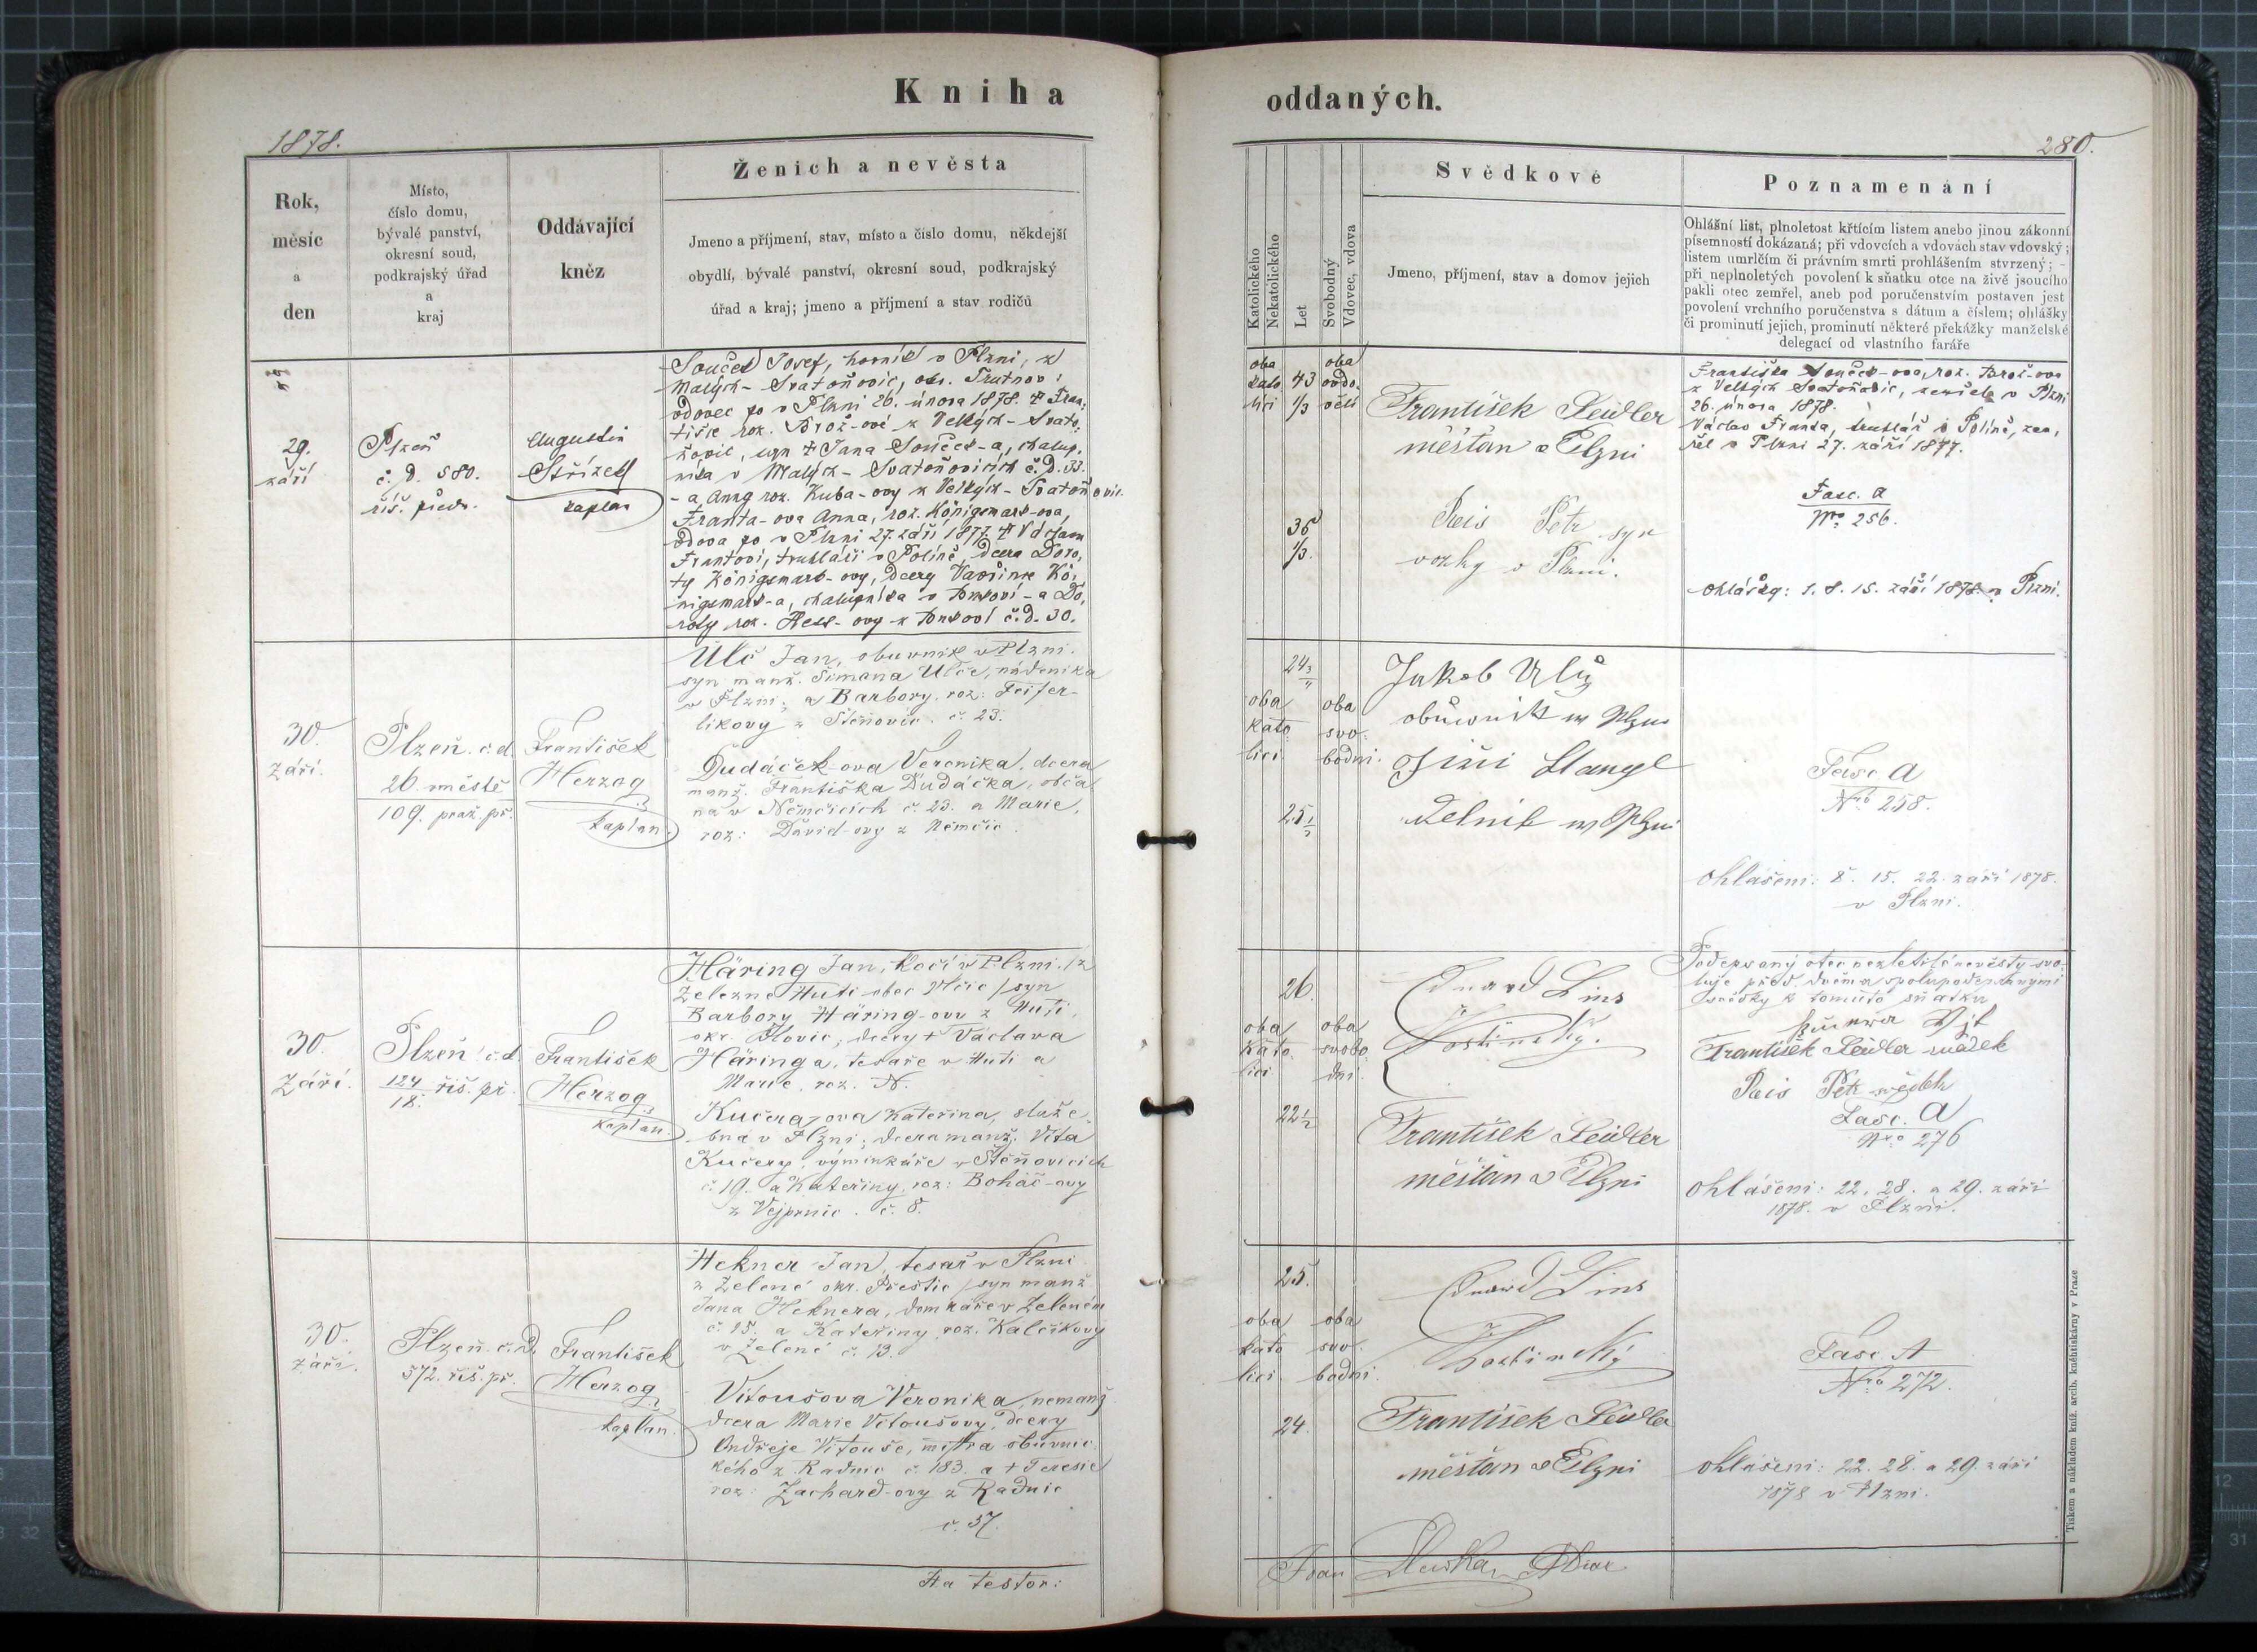 Kniha
1878.
Rok,
měsíc
a
den
Místo,
číslo domu,
bývalé panství,
okresní soud,
podkrajský úřad
a
kraj
Oddávající
kněz
Ženich a nevěsta
Jmeno a příjmení, stav, místo a číslo domu, někdejší
obydlí, bývalé panství, okresní soud, podkrajský
úřad a kraj; jmeno a příjmení a stav rodičů
29.
září
Plzeň
č. d. 580.
říš. předm.
Augustin
Střízek
kaplan
Souček Josef, horník v Plzni, z
Malých-Svatoňovic, okr. Trutnov;
vdovec po v Plzni 26. února 1878. † Fran-
tišce roz. Brož-ové z Velkých-Svato-
ňovic, syn † Jana Součk-a, chalup-
níka v Malých-Svatoňovicích č.d. 33.
-a Anny roz. Kuba-ovy z Velkých-Svatoňovic.
Franta-ova Anna, roz. Königsmark-ova,
vdova po v Plzni 27. září 1877. † Václavu
Frantovi, truhláři v Políně, dcera Doro-
ty Königsmark-ovy, dcery Vavřince Kö-
nigsmark-a, chalupníka v -a Do-
roty roz. Hess-ovy z č.d. 30.
30.
Září.
Plzeň. č.d.
26. městě
109. praž. př.
František
Herzog
kaplan.
Ulč Jan, obuvník v Plzni.
syn manž. Šimona Ulče, nádeníka
v Plzni, a Barbory, roz: Fejfer-
líkovy z Štěnovic. č. 23.
Dudáček-ova Veronika, dcera
manž. Františka Dudáčka, obča-
na v Němčicích č. 23. a Marie,
roz: David-ovy z Němčic.
30.
Září.
Plzeň č.d.
124/18. říš. př.
František
Herzog
kaplan.
Häring Jan, kočí v Plzni. /z
Železné Huti obec Vlčic / syn
Barbory Häring-ovy z Huti,
okr. , dcery † Václava
Häringa, tesaře v Huti a
Marie, roz. N.
Kučera-ova Kateřina, služe-
bná v Plzni; dcera manž. Víta
Kučery, výminkáře v Štěnovicích
č. 19. a Kateřiny, roz: Boháč-ovy
z Vejprnic. č. 8.
30.
Září.
Plzeň. č.d.
572. říš. př.
František
Herzog
kaplan.
Hekner Jan, tesař v Plzni
z Zelené okr. Přeštic / syn manž.
Jana Heknera, domkáře v Zeleném
č. 15. a Kateřiny, roz. Kalčíkovy
v Zelené č. 13.
Vitoušova Veronika, nemanž.
dcera Marie Vitoušovy, dcery
Ondřeje Vitouše, mistra obuvnic-
kého z Radnic č. 183. a † Teresie
roz: Zachard-ovy z Radnic
č. 57.
Ita testor:
oddaných.
280.
Katolického
Nekatolického
Let
Svobodný
Vdovec, vdova
Svědkové
Jmeno, příjmení, stav a domov jejich
Poznamenání
Ohlášní list, plnoletost křtícím listem anebo jinou zákonní
písemností dokázaná; při vdovcích a vdovách stav vdovský;
listem umrlčím či právním smrti prohlášením stvrzený; -
při neplnoletých povolení k sňatku otce na živě jsoucího
pakli otec zemřel, aneb pod poručenstvím postaven jest
povolení vrchního poručenstva s dátum a číslem; ohlášky
či prominutí jejich, prominutí některé překážky manželské
delegací od vlastního faráře
oba
kato
líci
43
1/3
oba
ovdo-
vělí
36
1/3.
František Seidler
měšťan v Plzni
Reis Petr syn
vozky v Plzni.
Františka Souček-ova, roz. Brož-ova
z Velkých Svatoňovic, zemřela v Plzni
26. února 1878.
Václav Franta, truhlář v Políně, zem-
řel v Plzni 27. září 1877.
Fasc. a
Nro 256.
Ohlášky: 1. 8. 15. září 1878. v Plzni.
24
oba
kato
lící
oba
svo-
bodni.
25 1/2
Jakob Ulč
obuwnik w Plzni
Jiři Stangl
w Plzni
Fasc. A
Nro 258.
Ohlášeni: 8. 15. 22. září 1878.
v Plzni.
26.
oba
kato
lici
oba
svobo
dni
22 1/2
Eduard Lins
František Seidler
měšťan v Plzni
Podepsaný otec nezletilé nevěsty svo-
luje před dvěma spolupodepsanými
svědky k tomuto sňatku
František Seidler svědek
Reis Petr svědek
Fasc. A
Nro 276
Ohlášeni: 22. 28. a 29. září
1878. v Plzni.
25.
oba
kato
lici
oba
svo-
bodni.
24.
Eduard Lins
František Seidler
měšťan v Plzni
Fasc. A
Nro 272.
Ohlášeni: 22. 28. a 29. září
1878 v Plzni.
Tiskem a nákladem kníž. arcib. kněhtiskárny v Praze